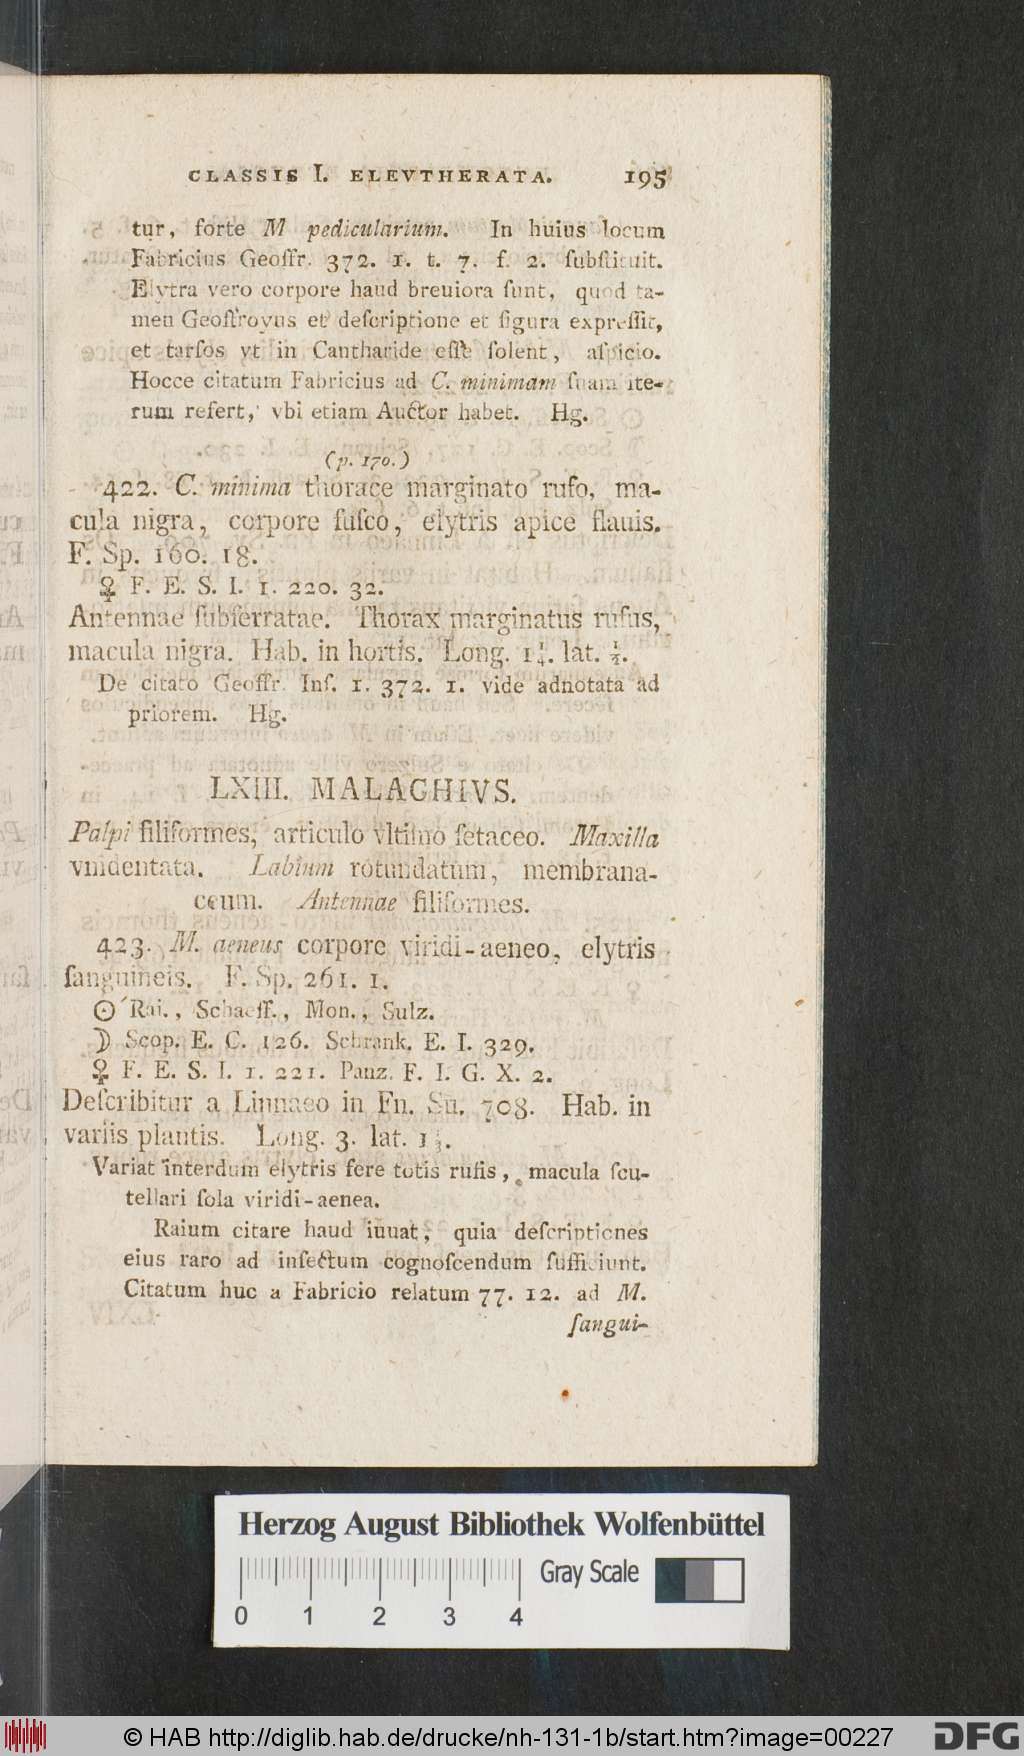 CLASSIS I. ELEVTHERATA. 195
tur, forte M pedicularium. In huius locum
Fabricius Geoffr. 372. 1. t. 7. f. 2. ſubſtituit.
Elytra vero corpore haud breuiora ſunt, quod ta-
men Geoffroyus et deſcriptione et figura expreſſit,
et tarſos vt in Cantharide eſſe ſolent, aſpicio.
Hocce citatum Fabricius ad C. minimam ſuam ite-
rum refert, vbi etiam Auctor habet. Hg.
(p. 170.)
422. C. minima thorace marginato rufo, ma-
cula nigra, corpore fuſco, elytris apice flauis.
F. Sp. 160. 18.
♀ F. E. S. I. 1. 220. 32.
Antennae ſubſerratae. Thorax marginatus rufus,
macula nigra. Hab. in hortis. Long. 1¼. lat. ½.
De citato Geoffr. Inſ. 1. 372. 1. vide adnotata ad
priorem. Hg.
LXIII. MALACHIVS.
Palpi filiformes, articulo vltimo ſetaceo. Maxilla
vnidentata. Labium rotundatum, membrana-
ceum. Antennae filiformes.
423. M. aeneus corpore viridi-aeneo, elytris
ſanguineis. F. Sp. 261. 1.
☉ Rai., Schaeff., Mon., Sulz.
☽ Scop. E. C. 126. Schrank. E. I. 329.
♀ F. E. S. I. 1. 221. Panz. F. I. G. X. 2.
Deſcribitur a Linnaeo in Fn. Su. 708. Hab. in
variis plantis. Long. 3. lat. 1⅓.
Variat interdum elytris fere totis rufis, macula ſcu-
tellari ſola viridi-aenea.
Raium citare haud iuuat, quia deſcriptiones
eius raro ad inſectum cognoſcendum ſufficiunt.
Citatum huc a Fabricio relatum 77. 12. ad M.
ſangui-
Herzog August Bibliothek Wolfenbüttel
Gray Scale
0 1 2 3 4
© HAB http://diglib.hab.de/drucke/nh-131-1b/start.htm?image=00227
DFG